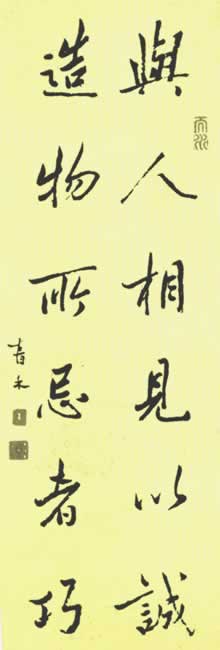 與人相見以誠
造物所忌者巧